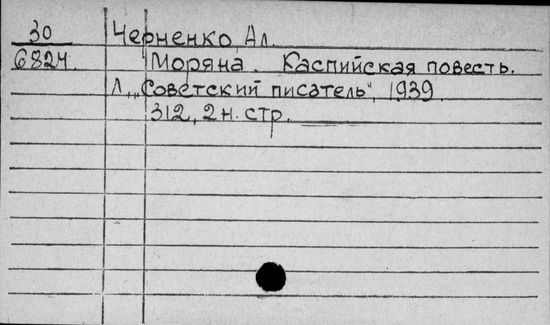 30 Черненко, Ал.
6824. Моряна. Каспийская повесть.
Л., „Советский писатель“, 1939.
312, 2 н. стр.